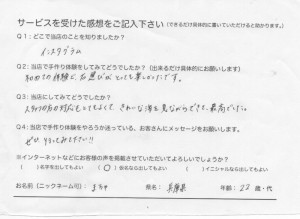 サービスを受けた感想をご記入下さい（できるだけ具体的に書いていただけると助かります。）
Q1：どこで当店のことを知りましたか？
インスタグラム
Q2：当店で手作り体験をしてみてどうでしたか？（出来るだけ具体的にお願いします）
初めての体験で、石選びがとても楽しかったです。
Q3：当店にしてみてどうでしたか？
スタッフの方の対応もとてもよくて、きれいな海を見ながらできて、最高でした。
Q4：当店で手作り体験をやろうか迷っている、お客さんにメッセージをお願いします。
ぜひやってみて下さい!!
※インターネットなどにお客様の声を掲載させていただいてよろしいでしょうか？
（　）名字を出してもよい　（○）仮名なら出してもよい　（　）イニシャルなら出してもよい
お名前（ニックネーム可）：　県名：兵庫県　年齢：22 歳・代